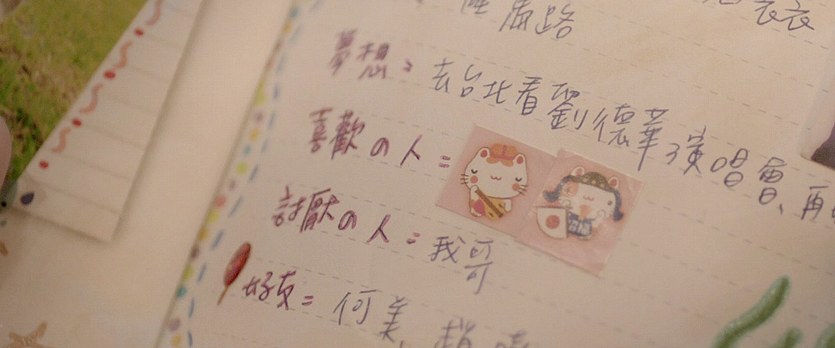 路
夢想：去台北看劉德華演唱會、再
喜歡の人=
討厭の人=我哥
好友=何美、趙